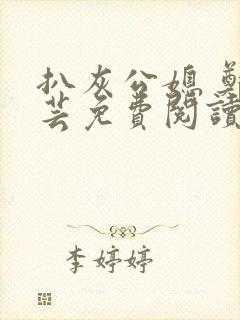 扒灰公媳
芸免費閱讀
李婷婷